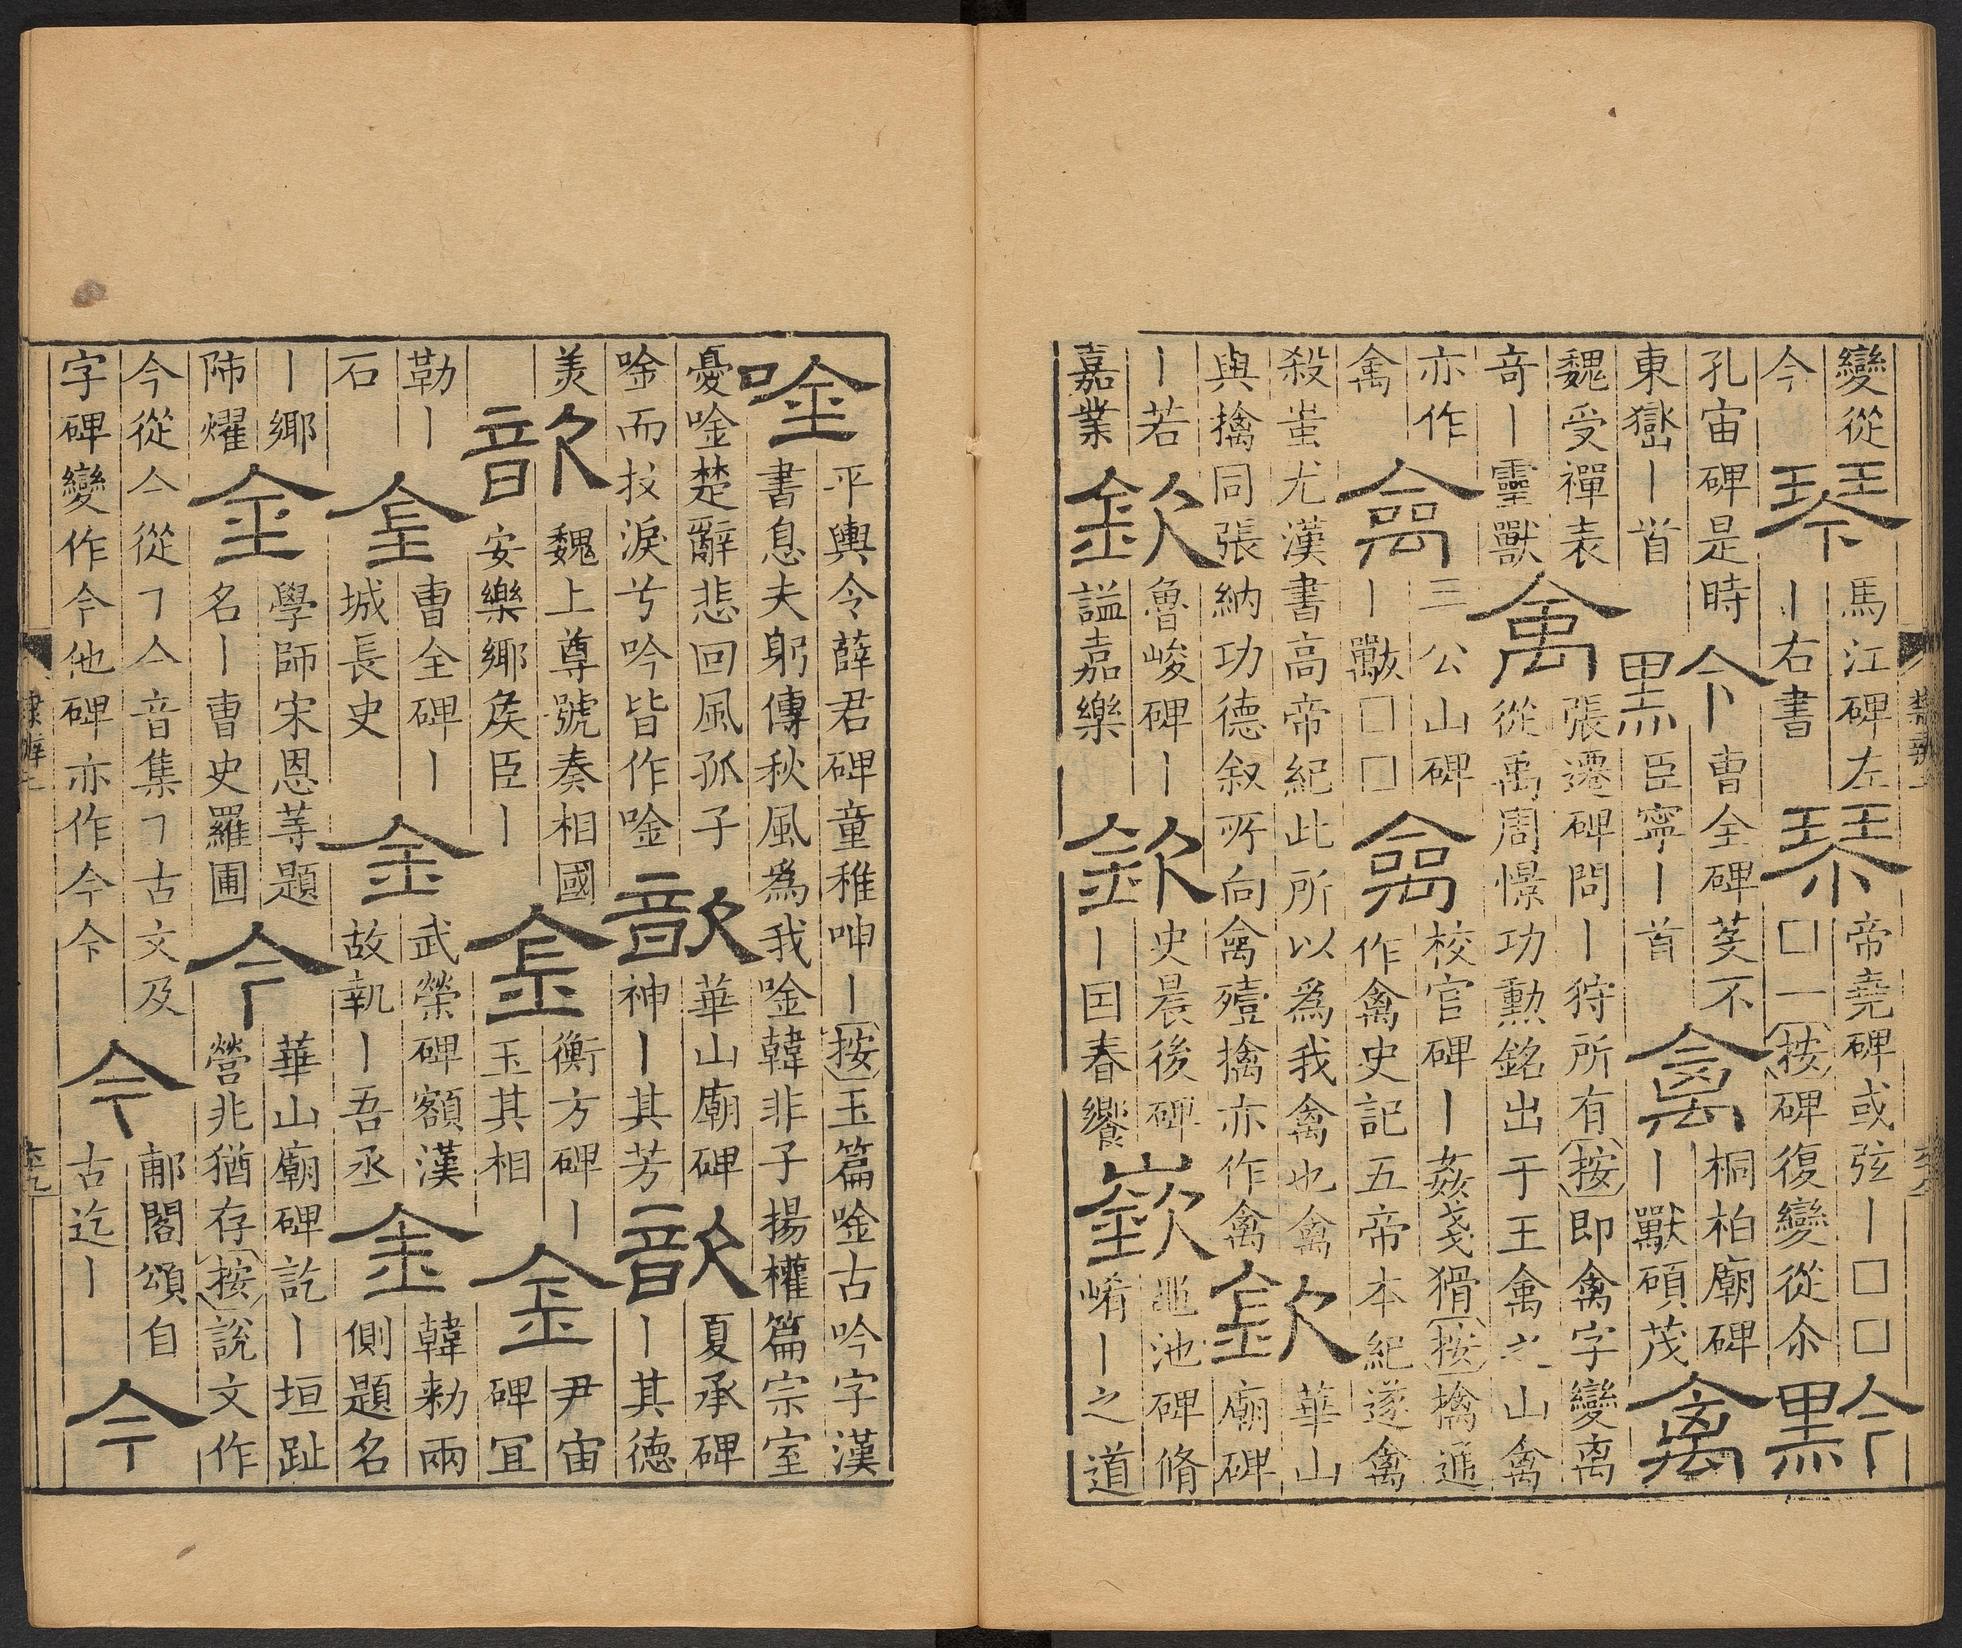 變從
今
琴
馬江碑左
丨右書
琴
帝堯碑或弦丨□□
□一按碑復變從尒
黔
孔宙碑是時
東巒丨首
黔
曹全碑芟不
臣寧丨首
禽
桐柏廟碑
丨獸碩茂
禽
魏受禪表
奇丨靈獸
禽
張遷碑問丨狩所有按即禽字變离
從禹周憬功勳銘出于王禽之山禽
亦作
禽
禽
三公山碑
丨獸□□
禽
校官碑丨姦戔猾按擒通
作禽史記五帝本紀遂禽
殺蚩尤漢書高帝紀此所以為我禽也禽
與擒同張納功德叙所向禽殪擒亦作禽
欽
華山
廟碑
丨若
嘉業
欽
魯峻碑丨
謚嘉樂
欽
史晨後碑
丨因春饗
嶔
黽池碑脩
崤丨之道
唫
平輿令薛君碑童稚呻丨按玉篇唫古吟字漢
書息夫躬傳秋風為我唫韓非子揚權篇宗室
憂唫楚辭悲回風孤子
唫而抆淚兮吟皆作唫
歆
華山廟碑
神丨其芳
歆
夏承碑
丨其德
美
歆
魏上尊號奏相國
安樂鄉矦臣丨
金
衡方碑丨
玉其相
金
尹宙
碑冝
勒丨
石
金
曹全碑丨
城長史
金
武榮碑額漢
故執丨吾丞
金
韓勑兩
側題名
丨鄉
陠燿
金
學師宋恩等題
名丨曹史羅圃
今
華山廟碑訖丨垣趾
營兆猶存按說文作
今從亼從㇕亼音集㇕古文及
字碑變作今他碑亦作今今
今
郙閣頌自
古迄丨
今